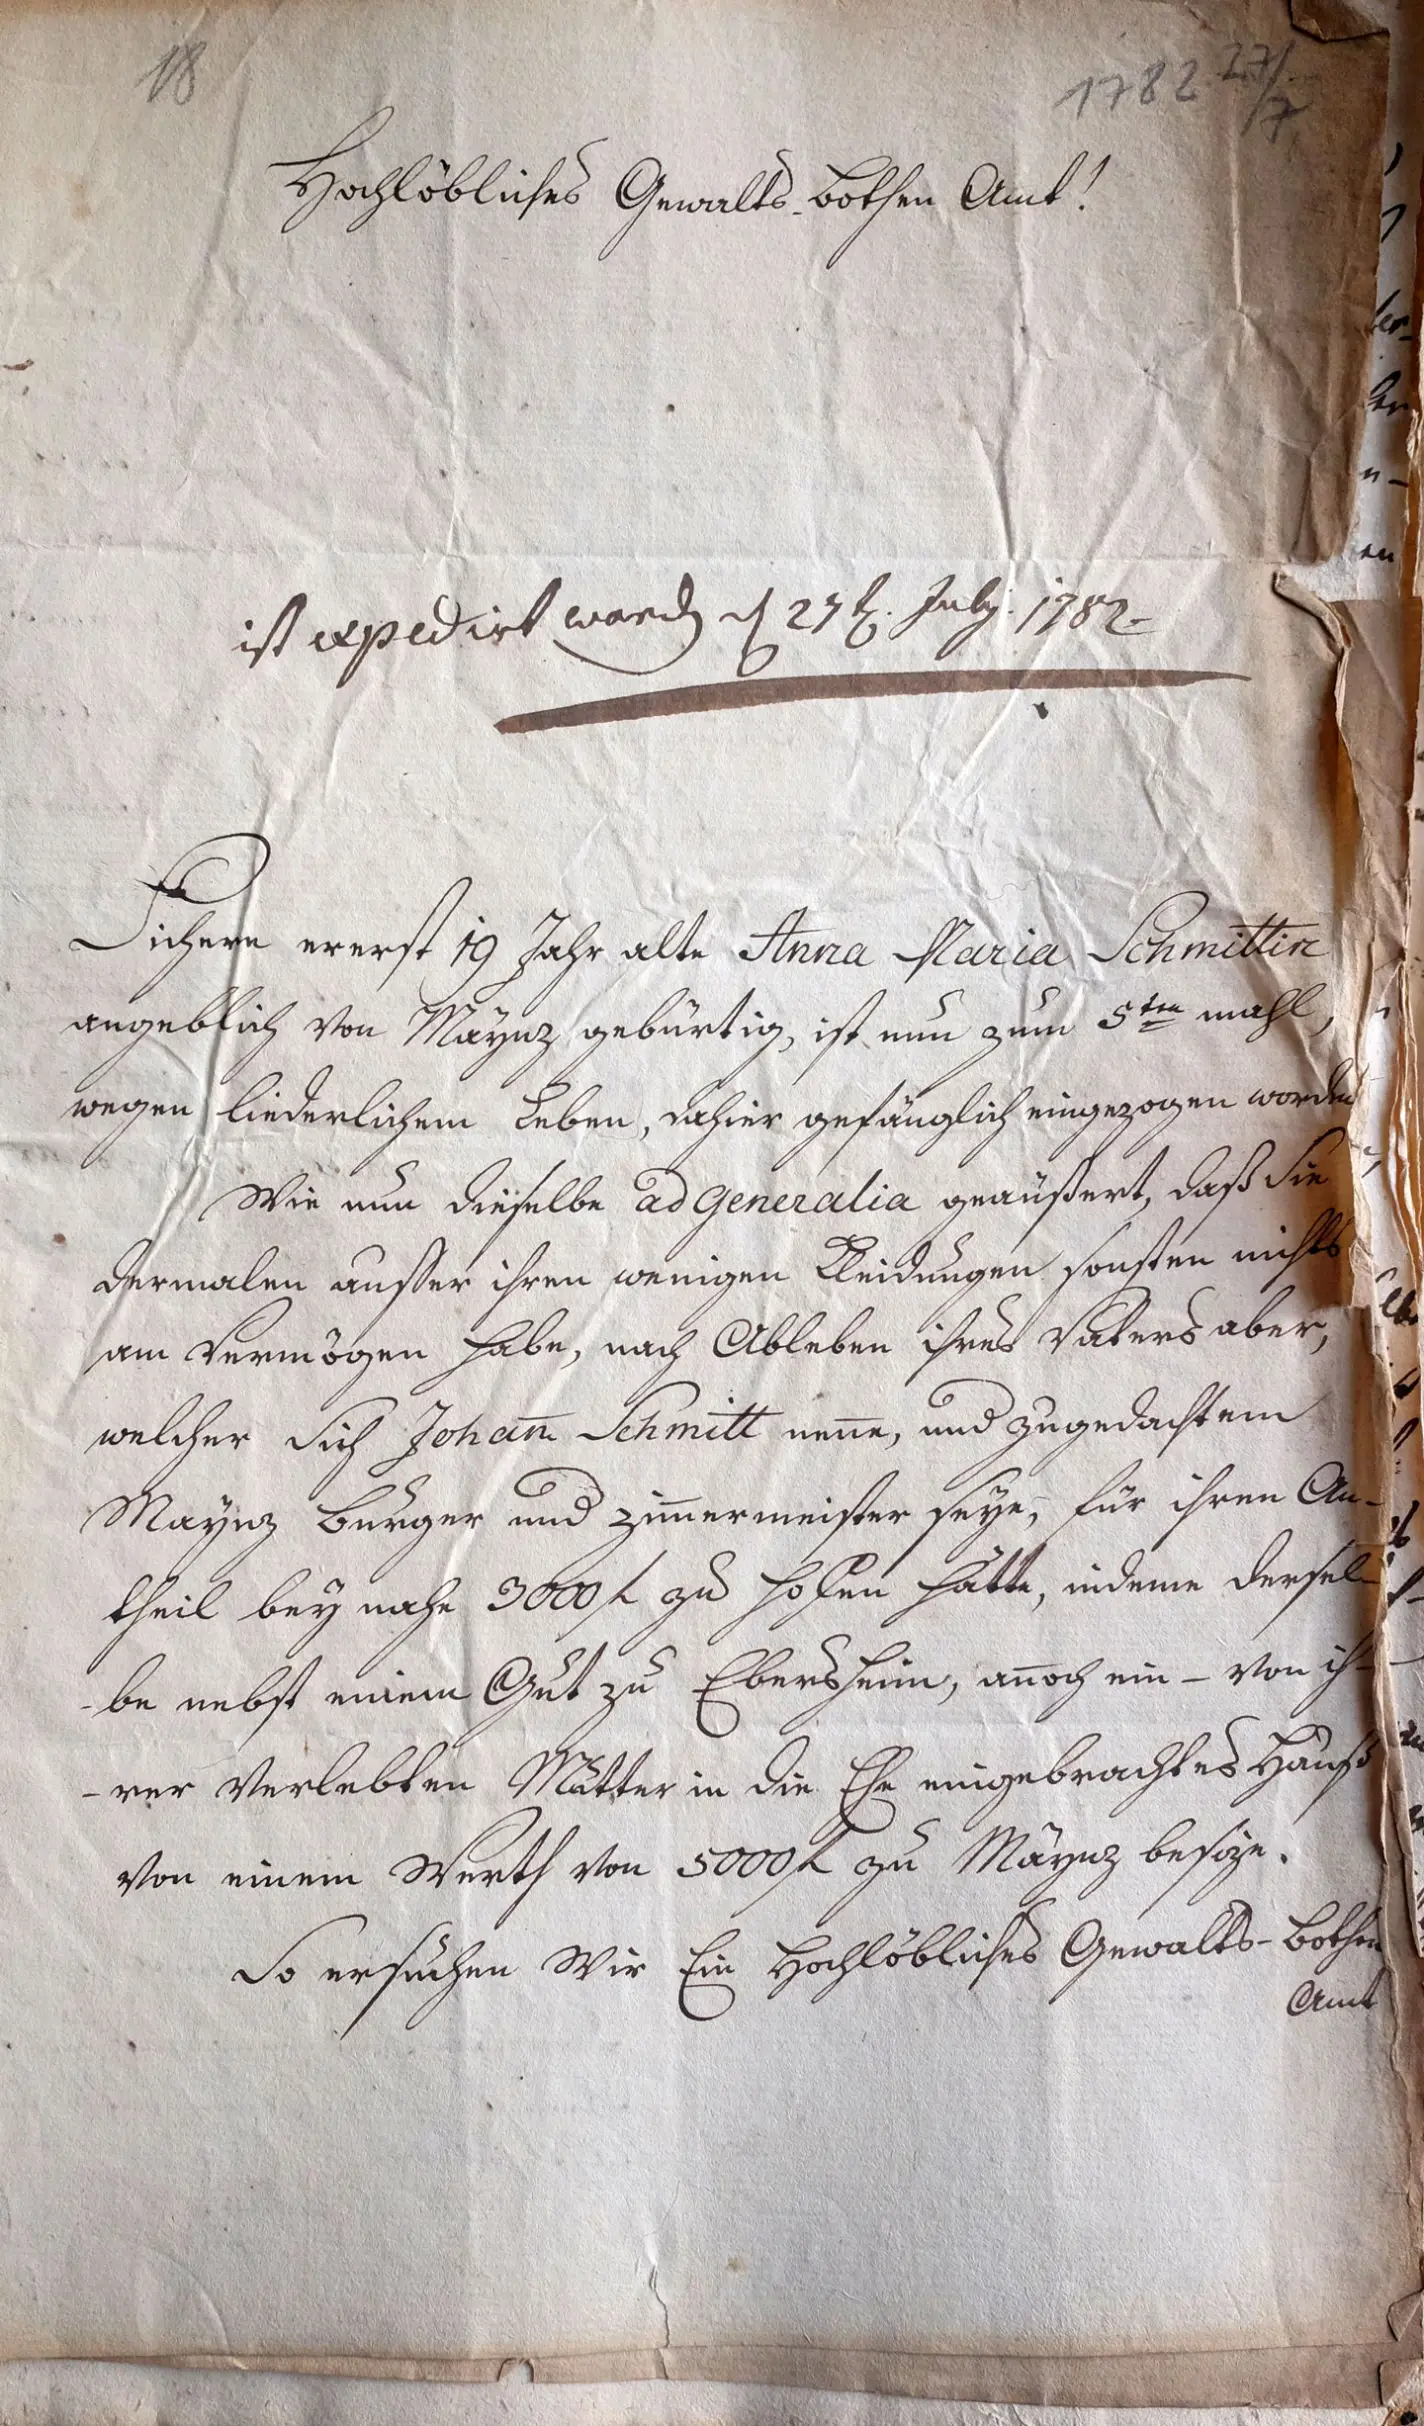 18
1782 27/7
Hochlöbliches Gewalts-bothen Amt!
ist expedirt word d 27t. July. 1782.
ererst 19 Jahr alte Anna Maria Schmittin
angeblich von Maÿnz gebürtig, ist nun zum 5ten mahl,
wegen liederlichem Leben, dahier gefänglich eingezogen worden
Wie nun dieselbe ad Generalia geäußert, daß Sie
dermalen ausser ihren wenigen Kleidungen sonsten nichts
am Vermögen habe, nach Ableben ihres Vaters aber,
welcher Sich Johan̅ Schmitt nen̅e, und zugedachtem
Maÿnz Burger und Zim̅ermeister seÿe, für ihren An-
theil beÿ nahe 3000 f zu hofen hätte, indeme dersel-
-be nebst einem Gut zu Ebersheim, an̅och ein - von ih-
-rer Verlebten Mutter in die Ehe eingebrachtes Hauß
von einem Werth von 5000 f zu Maÿnz besize.
So ersuchen Wir Ein Hochlöbliches Gewalts-bothen
Amt